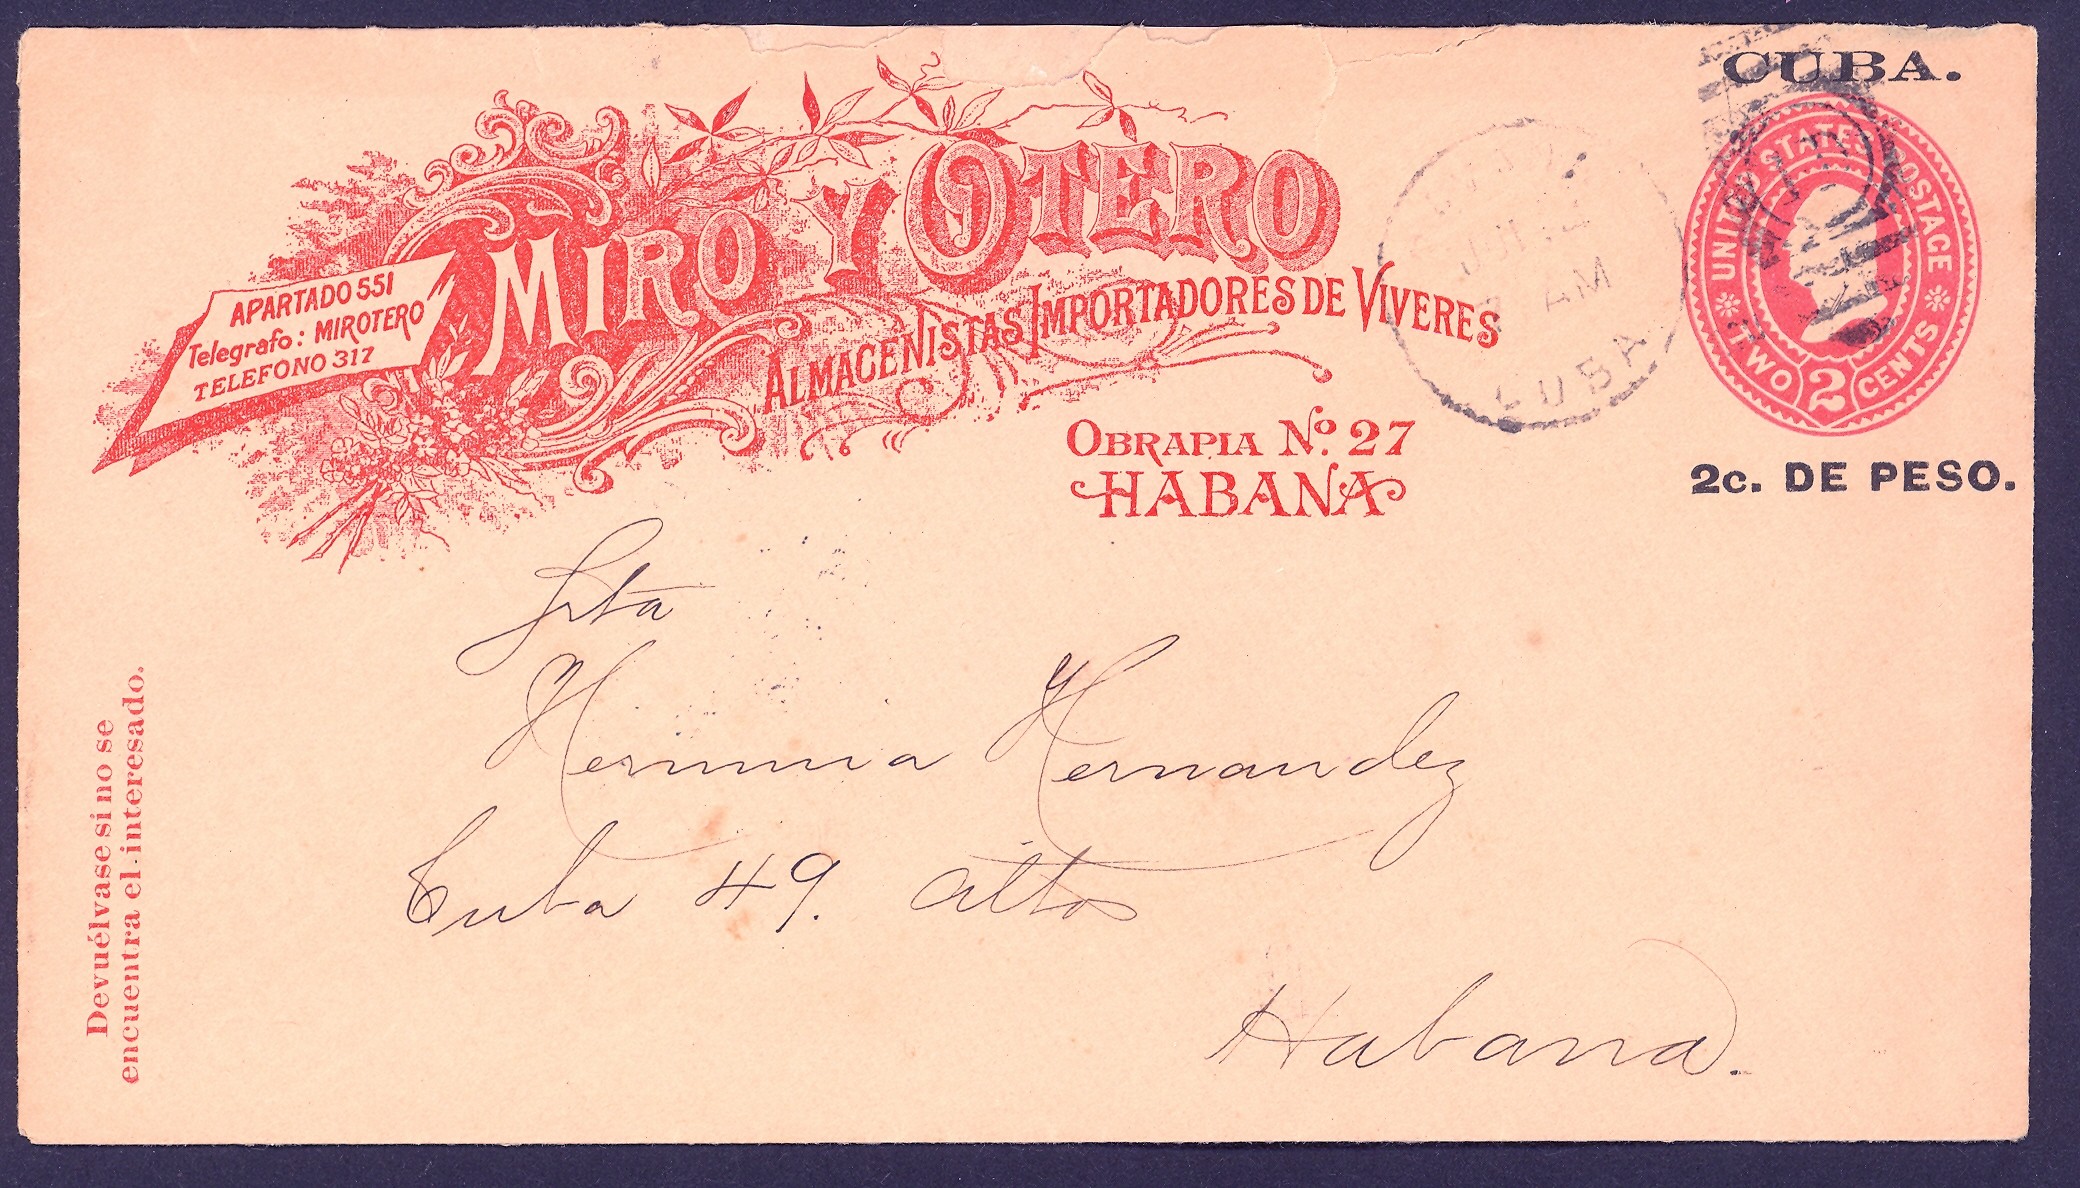 APARTADO 551
Telegrafo: MIROTERO
TELEFONO 317
MIRO Y OTERO
ALMACENISTAS IMPORTADORES DE VIVERES
OBRAPIA Nº 27
HABANA
AM
CUBA
CUBA.
UNITED STATES POSTAGE
TWO 2 CENTS
2c. DE PESO.
Srta
Herminia Hernandez
Cuba 49. altos
Habana.
Devuélvase si no se
encuentra el interesado.